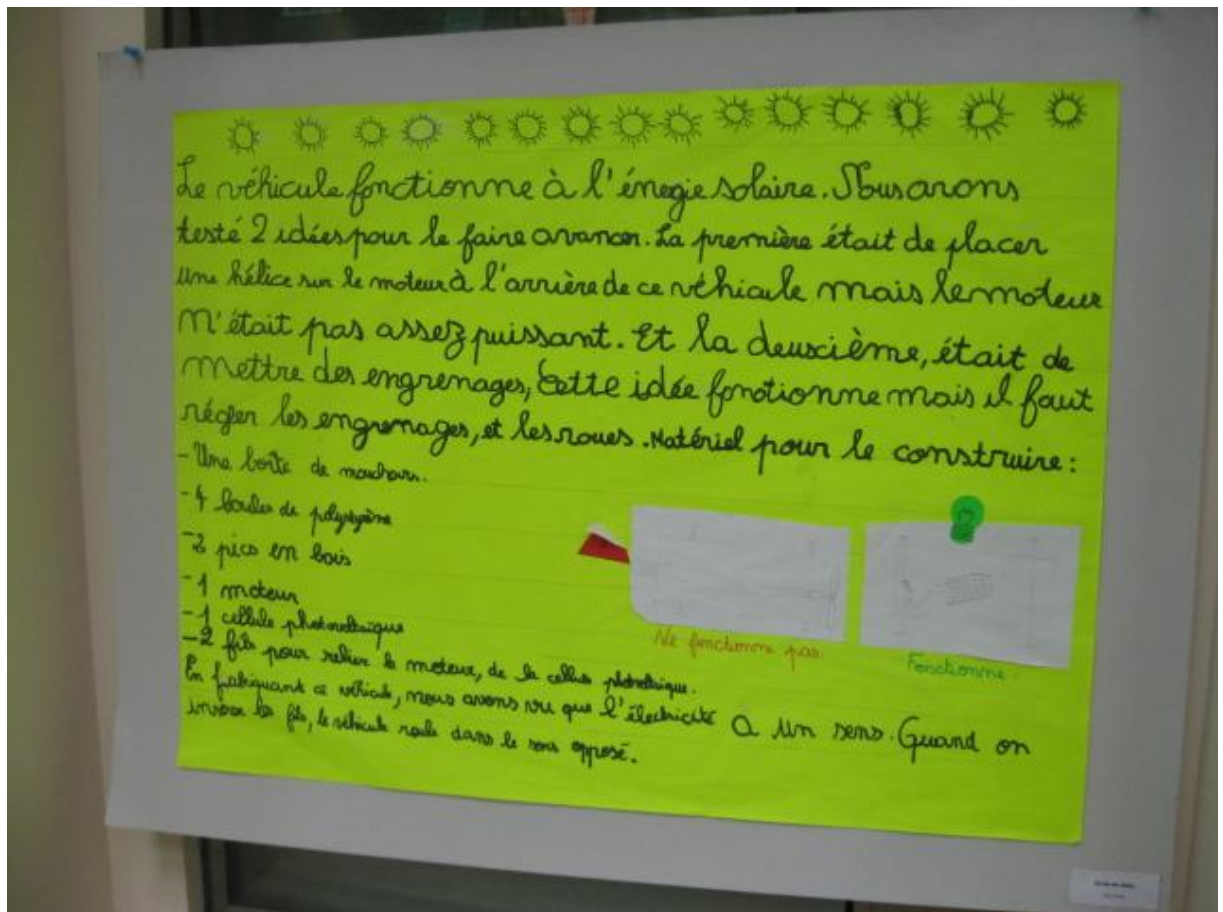 Le véhicule fonctionne à l'énegie solaire. Nous avons
testé 2 idées pour le faire avancer. La première était de placer
une hélice sur le moteur à l'arrière de ce véhicule mais le moteur
n'était pas assez puissant. Et la deuxième, était de
mettre des engrenages, Cette idée fonctionne mais il faut
régler les engrenages, et les roues. Matériel pour le construire :
- Une boîte de mouchoirs.
- 4 boules de polystyrène
- 2 pics en bois
- 1 moteur
- 1 cellule photovoltaïque
- 2 fils pour relier le moteur, de la cellule photovoltaïque.
Ne fonctionne pas.
Fonctionne.
En fabriquant ce véhicule, nous avons vu que l'électricité a un sens. Quand on
inverse les fils, le véhicule roule dans le sens opposé.